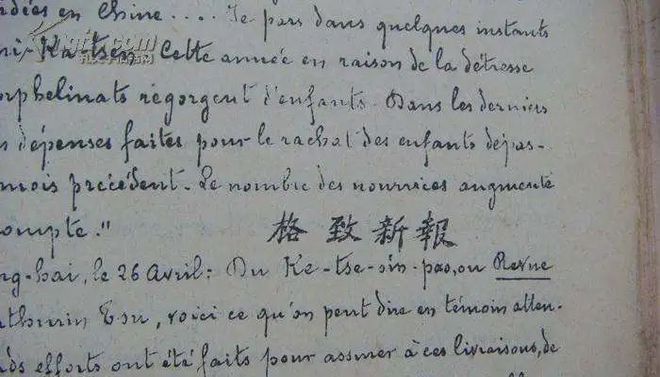 rdées en Chine .... Je pars dans quelques instants
ni-Ka-tsen. Cette année en raison de la détresse
orphelinats régorgent d'enfants. Dans les derniers
s dépenses faites pour le rachat des enfants dépas-
mois précédent. Le nombre des nourrices augmente
compte."
格致新報
ng-hai, le 26 Avril: Du Ke-tse-sin-pao, ou Revue
athurin Tsu, voici ce qu'on peut dire en témoin atten-
ds efforts ont été faits pour assurer à ces livraisons, de